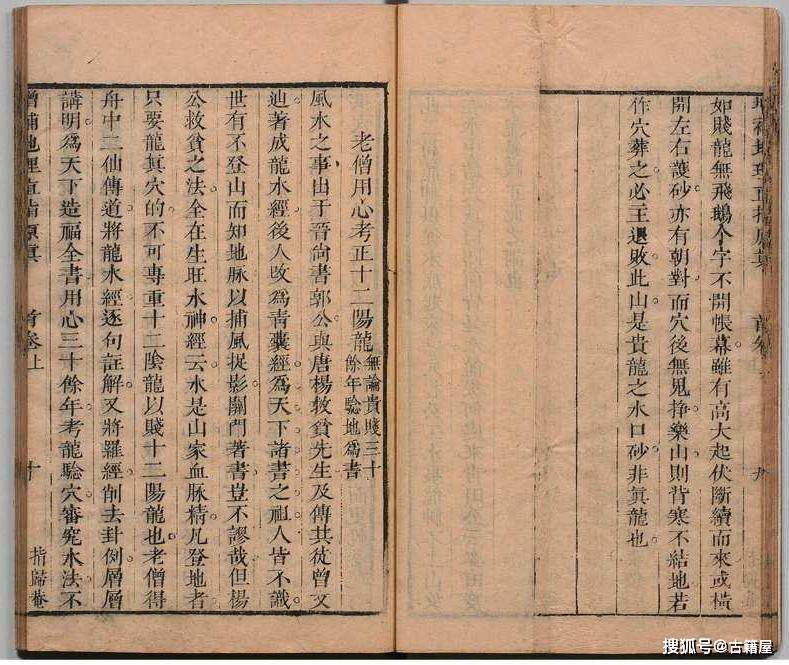 如賤龍無飛鵝个字不開帳幕雖有高大起伏斷續而來或橫
開左右護砂亦有朝對而穴後無鬼撐樂山則背寒不結地若
作穴葬之必主退敗此山是貴龍之水口砂非眞龍也
老僧用心考正十二陽龍
無論貴賤三十
餘年騐地為書
風水之事由于晉尚書郭公與唐楊救貧先生及傳其徒曾文
辿著成龍水經後人改為青囊經為天下諸書之祖人皆不識
世有不登山而知地脉以捕風捉影關門著書豈不謬哉但楊
公救貧之法全在生旺水神經云水是山家血脉精凡登地者
只要龍眞穴的不可專重十二陰龍以賤十二陽龍也老僧得
舟中二仙傳道將龍水經逐句註解又將羅經削去卦例層層
講明為天下造福全書用心三十餘年考龍騐穴審究水法不
增補地理直指原眞
首卷上
十
指歸菴
搜狐号@古籍屋